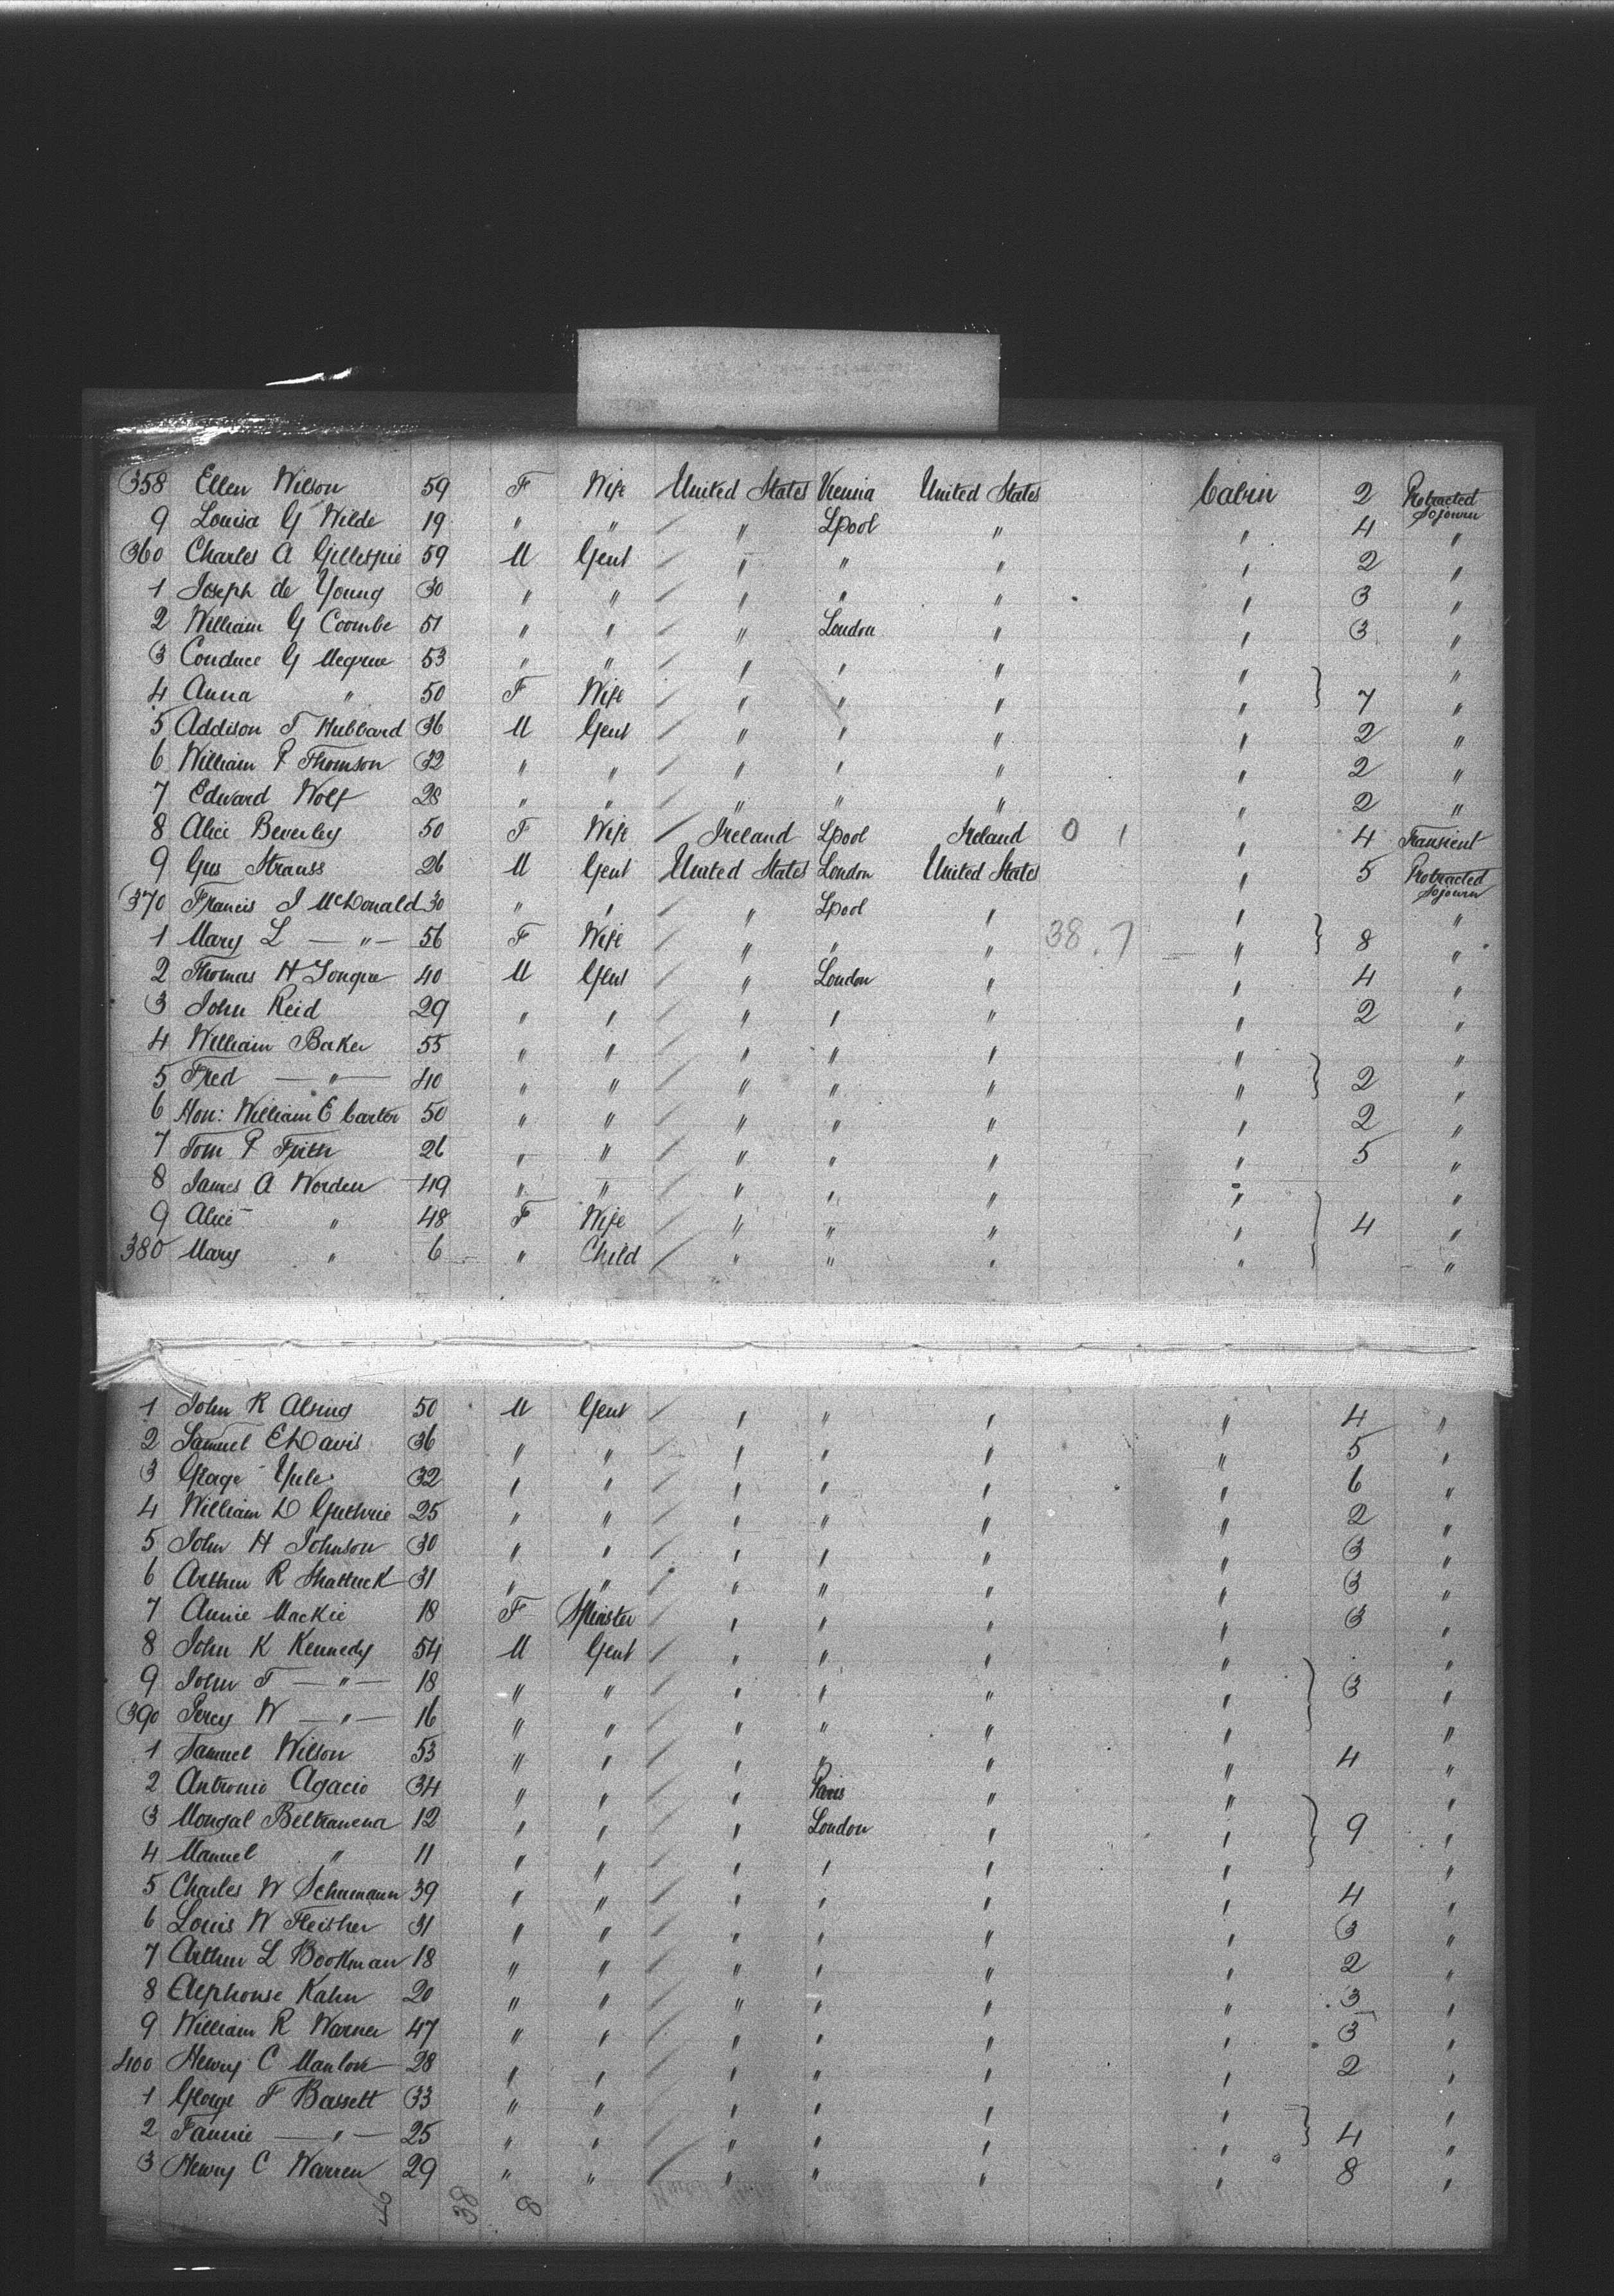 358 Ellen Wilson 59 F Wife United States Vienna United States Cabin 2 Protracted Sojourn
9 Louisa G Wilde 19 " " / " Lpool " " 4 "
360 Charles A Gillespie 59 M Gent / " " " " 2 "
1 Joseph de Young 30 " " / " " " " 3 "
2 William G Coombe 51 " " / " London " " 3 "
3 G Megrue 53 " " / " " " " "
4 Anna " 50 F Wife / " " " " } 7 "
5 Addison T Hubbard 36 M Gent / " " " " 2 "
6 William P Thomson 32 " " / " " " " 2 "
7 Edward Wolf 28 " " / " " " " 2 "
8 Alice Beverley 50 F Wife / Ireland Lpool Ireland 0 1 " 4 Transient
9 Gus Strauss 26 M Gent United States London United States " 5 Protracted Sojourn
370 Francis J McDonald 30 " " / " Lpool " " "
1 Mary L — " — 56 F Wife / " " " 38.7 " } 8 "
2 Thomas H 40 M Gent / " London " " 4 "
3 John Reid 29 " " / " " " " 2 "
4 William Baker 55 " " / " " " " "
5 Fred — " — 40 " " / " " " " } 2 "
6 Hon: William E Carter 50 " " / " " " " 2 "
7 Tom P Frith 26 " " / " " " " 5 "
8 James A Worden 49 " " / " " " " "
9 Alice " 48 F Wife / " " " " } 4 "
380 Mary " 6 " Child / " " " " "
1 John R Alsing 50 M Gent / " " " " 4 "
2 Samuel E Davis 36 " " / " " " " 5 "
3 George Yule 32 " " / " " " " 6 "
4 William D Guthrie 25 " " / " " " " 2 "
5 John H Johnson 30 " " / " " " " 3 "
6 Arthur R Shattuck 31 " " / " " " " 3 "
7 Annie Mackie 18 F Spinster / " " " " 3 "
8 John K Kennedy 54 M Gent / " " " " "
9 John T — " — 18 " " / " " " " } 3 "
390 Percy W — " — 16 " " / " " " " "
1 Samuel Wilson 53 " " / " " " " 4 "
2 Antonio Agacio 34 " " / " Paris " " "
3 Beltranena 12 " " / " London " " } 9 "
4 Manuel " 11 " " / " " " " "
5 Charles W Schumann 39 " " / " " " " 4 "
6 Louis W Fleisher 31 " " / " " " " 3 "
7 Arthur L Bookman 18 " " / " " " " 2 "
8 Alphonse Kahn 20 " " / " " " " 3 "
9 William R Warner 47 " " / " " " " 3 "
400 Henry C Manlove 28 " " / " " " " 2 "
1 George F Bassett 33 " " / " " " " "
2 Fannie — " — 25 " " / " " " " } 4 "
3 Henry C Warren 29 " " / " " " " 8 "
46 38 8